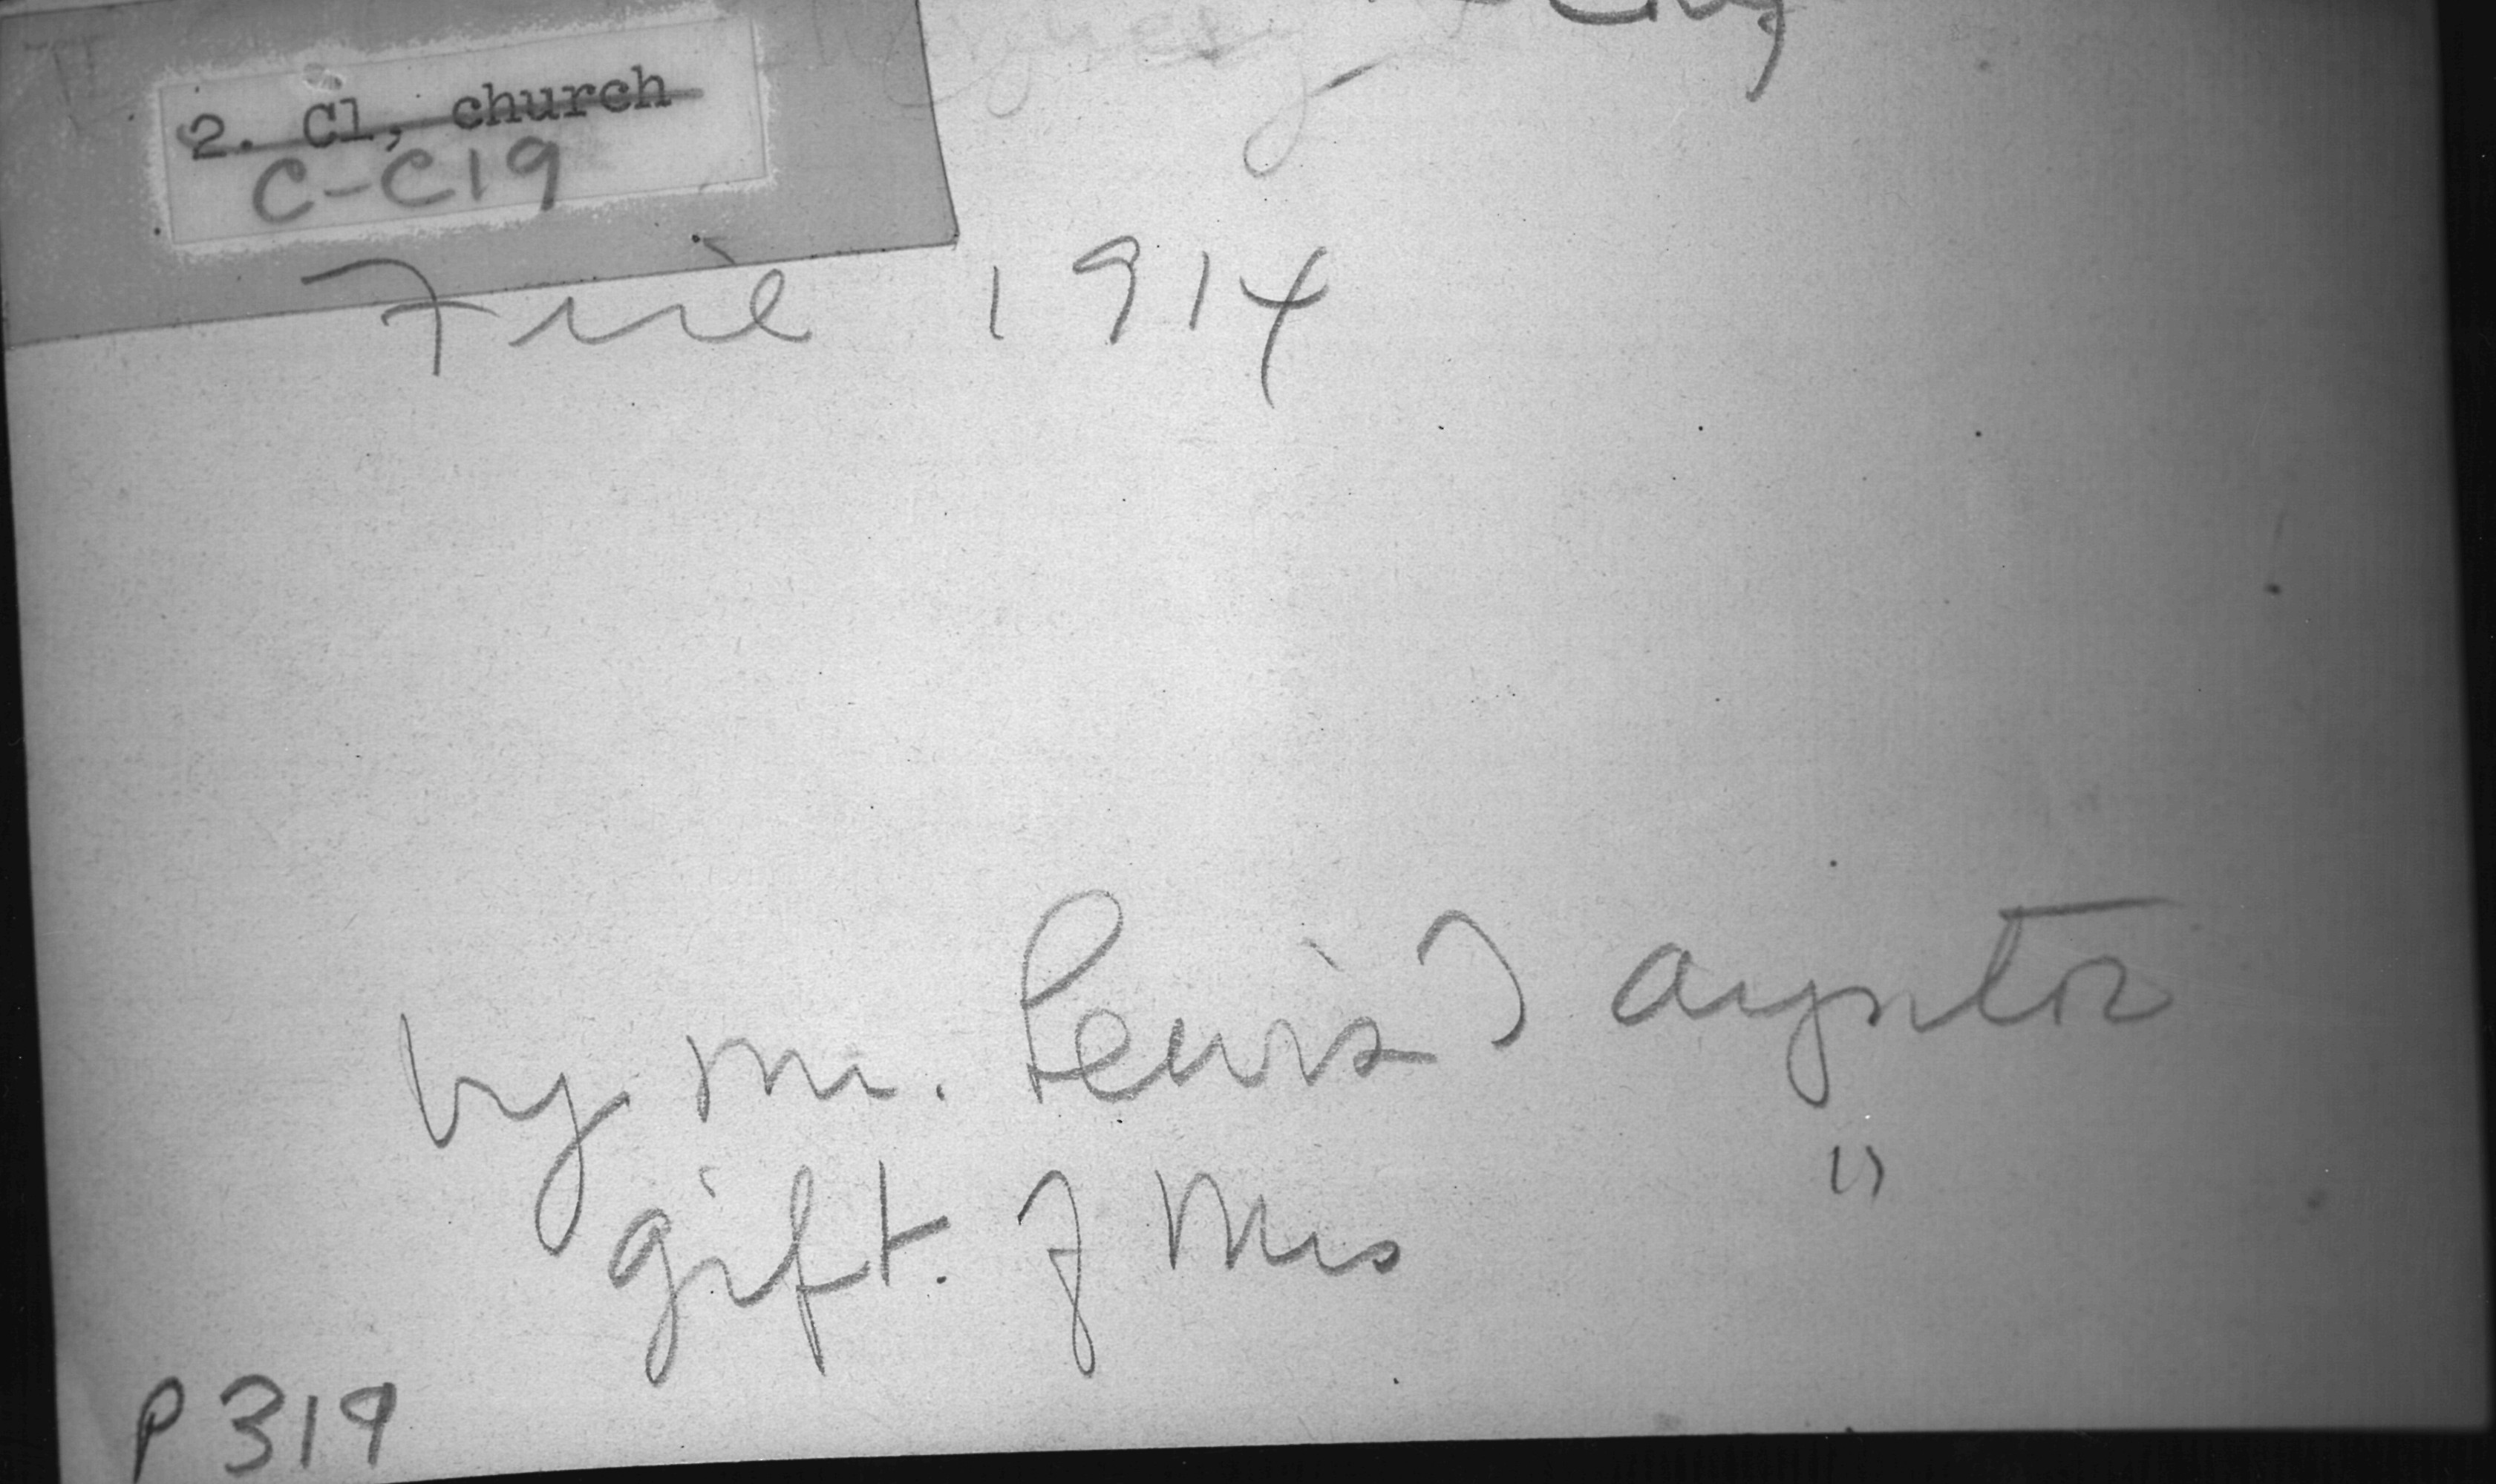 2. Cl, church
C-C19
Fire 1914
by Mr. Lewis
gift. of Mrs "
P319